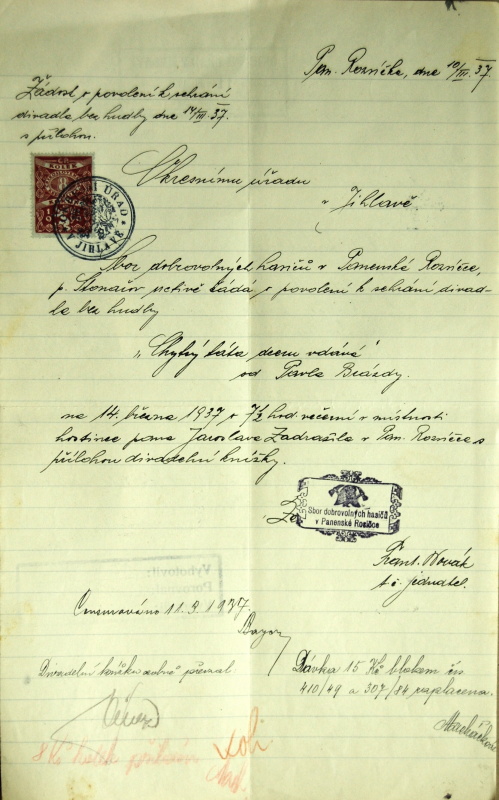 Pan. Rozsíčka, dne 10/III. 37.
Žádost o povolení k sehrání
divadla bez hudby dne 14/III. 37.
s přílohou.
KOLEK
Okresnímu úřadu
v Jihlavě.
ÚŘAD
JIHLAVA
Sbor dobrovolných hasičů v Panenské Rosičce,
p. Stonařov uctivě žádá o povolení k sehrání divad-
la bez hudby
„Chytrý táta dceru vdává"
od Pavla Brázdy.
na 14. března 1937 o 7½ hod. večerní v místnosti
hostince pana Jaroslava Zadražila v Pan. Rosičce s
přílohou divadelní knížky.
Za
Sbor dobrovolných hasičů
v Panenské Rosičce
Frant. Novák
t. č. jednatel.
Vyhotovil:
Porovnal:
Censurováno 11. 3. 1937
Divadelní knížku zpět převzal
Dávka 15 Kč blokem čís
410/49 a 307/84 zaplacena.
8 Kč kolek